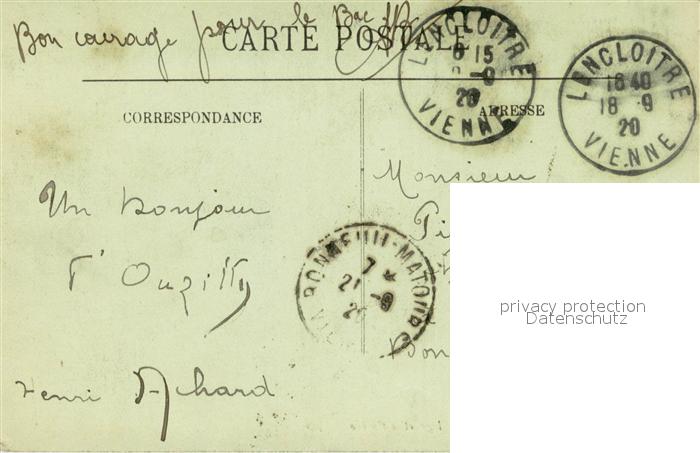 Bon courage pour le Bac
CARTE POSTALE
LENCLOITRE
6 15
-9
20
VIENNE
LENCLOITRE
18 40
18 -9
20
VIENNE
CORRESPONDANCE
ADRESSE
Monsieur
Un bonjour
d'Ouzilly
BONNEUIL-MATOURS
7 *
21 -9
Bon
Henri Achard
privacy protection
Datenschutz